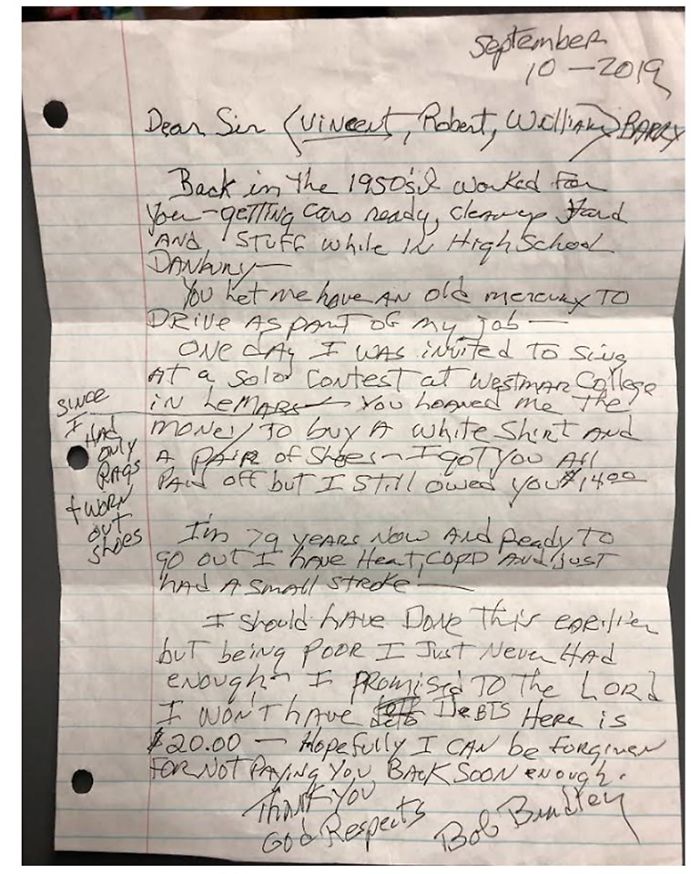 September
10-2019
Dear Sir (Vincent, Robert, William) BARRY
Back in the 1950's I worked for
you-getting cars ready, cleanup Yard
AND STUFF while IN High School
DANbury-
You let me have AN old mercury TO
DRIVE AS part OF my job-
ONE dAy I WAS invited TO Sing
AT a Solo Contest at Westmar College
in LeMARS- You loaned me The
money TO buy A white Shirt AND
A PAIR of Shoes- I got you All
PAID off but I STill owed you $14.00
SINCE
I HAD
ONLY
RAGS
+ WORN
OUT
Shoes
I'm 79 years Now AND Ready TO
go out I have Heart, COPD AND just
had A small stroke!
I should have Done This earlier
but being POOR I JUST Never HAD
enough- I PROMISED TO The LORD
I WON'T have DeBTS Here is
$20.00 - Hopefully I CAN be forgiven
FOR NOT PAYING you BACK SOON enough.
Thank you
God Respects
Bob